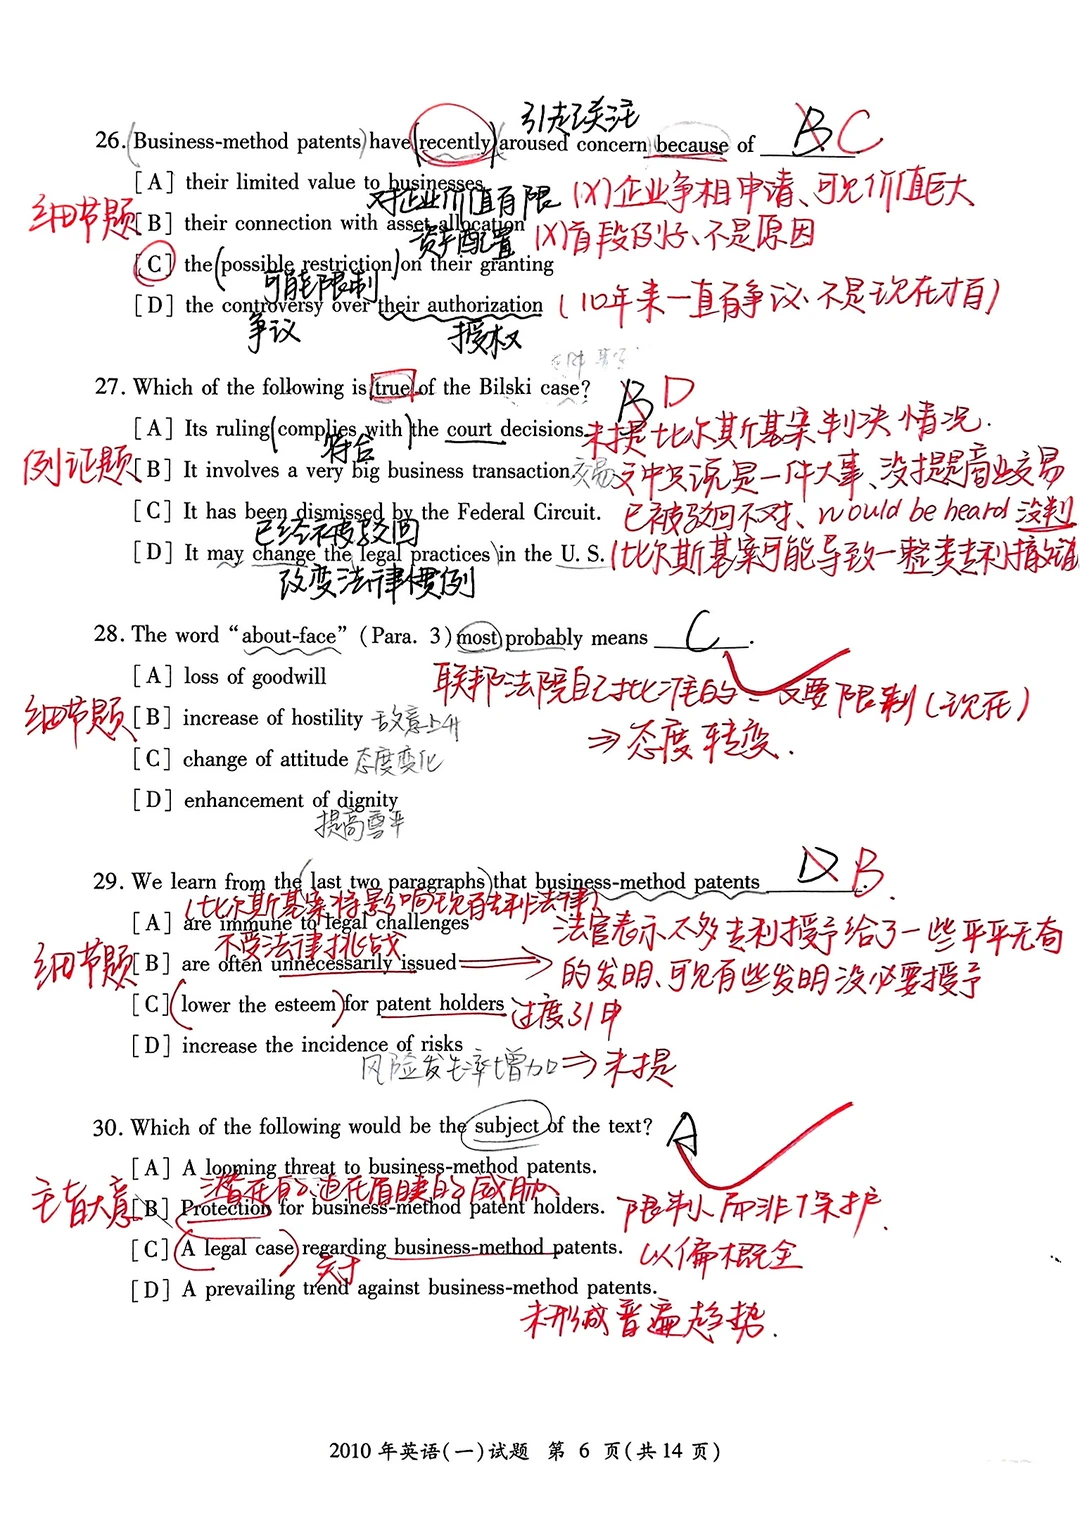 引起关注
26. Business-method patents have recently aroused concern because of B C
[A] their limited value to businesses
对企业价值有限 (X)企业争相申请、可见价值巨大
细节题
[B] their connection with asset allocation
资产配置 (X)首段例子、不是原因
[C] the possible restriction on their granting
可能限制
[D] the controversy over their authorization (10年来一直有争议、不是现在才有)
争议 授权
27. Which of the following is true of the Bilski case? B D
[A] Its ruling complies with the court decisions. 未提比尔斯基案判决情况.
符合
例证题
[B] It involves a very big business transaction. 交易 文中只说是一件大事、没提是商业交易
[C] It has been dismissed by the Federal Circuit. 已被驳回不对、would be heard 没判
已经被驳回
[D] It may change the legal practices in the U. S. 比尔斯基案可能导致一整类专利撤销
改变法律惯例
28. The word “about-face” (Para. 3) most probably means C.
[A] loss of goodwill 联邦法院自己批准的 又要限制(现在)
细节题
[B] increase of hostility 敌意上升
⇒态度转变.
[C] change of attitude 态度变化
[D] enhancement of dignity
提高
29. We learn from the last two paragraphs that business-method patents D B.
(比尔斯基案将影响现有专利法律)
[A] are immune to legal challenges 法官表示不少专利授予给了一些平平无奇
不受法律挑战
细节题
[B] are often unnecessarily issued 的发明、可见有些发明没必要授予
[C] lower the esteem for patent holders 过度引申
[D] increase the incidence of risks
风险发生率增加⇒未提
30. Which of the following would be the subject of the text? A
[A] A looming threat to business-method patents.
潜在的、迫在眉睫的威胁
主旨大意
[B] Protection for business-method patent holders. 限制、而非保护.
[C] A legal case regarding business-method patents. 以偏概全
关于
[D] A prevailing trend against business-method patents.
未形成普遍趋势.
2010 年英语(一)试题 第 6 页(共14 页)